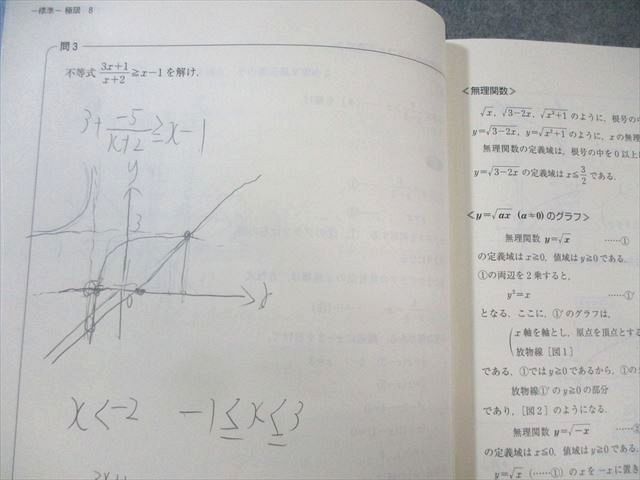 −標準− 極限 8
問3
不等式 3x+1/x+2 ≧ x−1 を解け.
3+ -5/x+2 ≧ x-1
y
3
x
x<-2 -1≦x≦3
<無理関数>
√x, √3−2x, √x²+1 のように, 根号の中
y=√3−2x, y=√x²+1 のように, x の無理
無理関数の定義域は, 根号の中を 0 以上に
y=√3−2x の定義域は x≦3/2 である.
<y=√ax (a≠0) のグラフ>
無理関数 y=√x ……①
の定義域は x≧0, 値域は y≧0 である.
①の両辺を 2 乗すると,
y²=x ……①′
となる. ここに, ①′ のグラフは,
x 軸を軸とし, 原点を頂点とする
放物線 [図1]
である. ①では y≧0 であるから, ①の
放物線①′ の y≧0 の部分
であり, [図2] のようになる.
無理関数 y=√−x ……②
の定義域は x≦0, 値域は y≧0 である.
y=√x (……①) の x を −x に置き